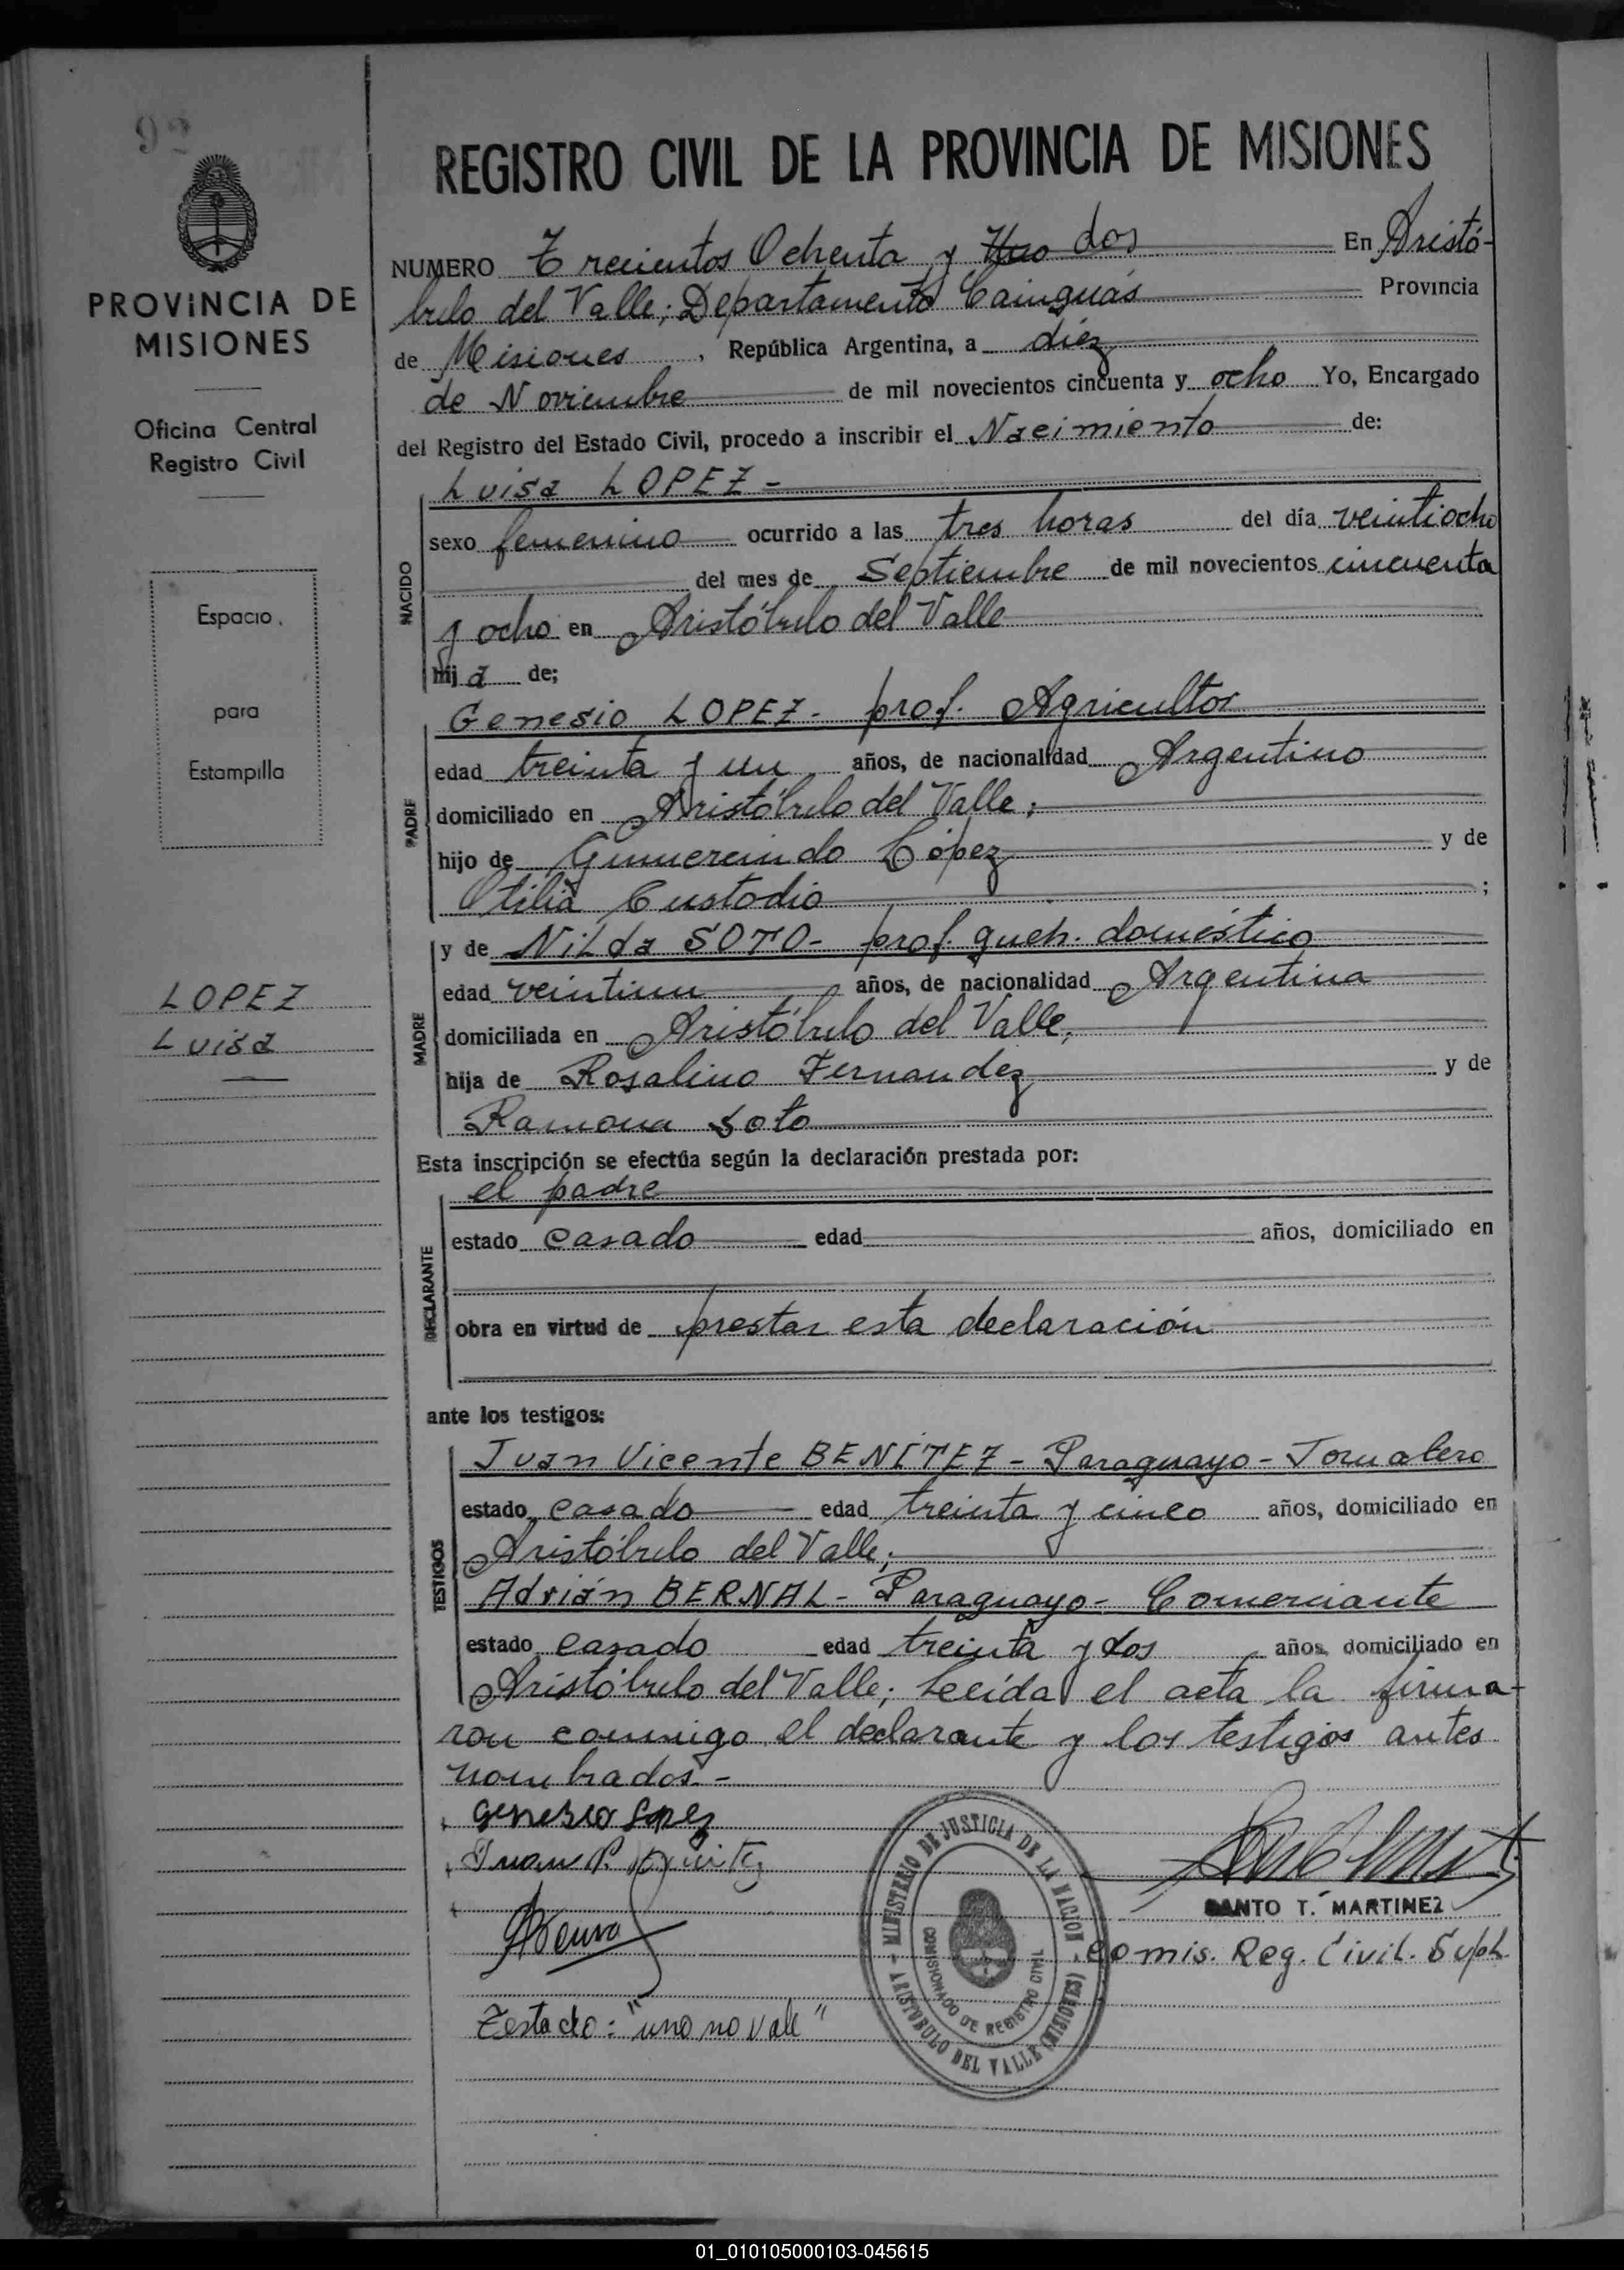 92
PROVINCIA DE
MISIONES
Oficina Central
Registro Civil
Espacio
para
Estampilla
LOPEZ
Luisa
REGISTRO CIVIL DE LA PROVINCIA DE MISIONES
NUMERO Trecientos Ochenta y Uno dos En Aristó-
bulo del Valle; Departamento Cainguás Provincia
de Misiones, República Argentina, a diez
de Noviembre de mil novecientos cincuenta y ocho Yo, Encargado
del Registro del Estado Civil, procedo a inscribir el Nacimiento de:
Luisa LOPEZ -
NACIDO
sexo femenino ocurrido a las tres horas del día veintiocho
del mes de Septiembre de mil novecientos cincuenta
y ocho en Aristóbulo del Valle
hija de;
PADRE
Genesio LOPEZ - prof. Agricultor
edad treinta y un años, de nacionalidad Argentino
domiciliado en Aristóbulo del Valle;
hijo de Gumercindo López y de
Otilia Custodio ;
MADRE
y de Nilda SOTO - prof. queh. doméstico
edad veintiun años, de nacionalidad Argentina
domiciliada en Aristóbulo del Valle,
hija de Rosalino Fernandez y de
Ramona Soto
Esta inscripción se efectúa según la declaración prestada por:
DECLARANTE
el padre
estado casado edad años, domiciliado en
obra en virtud de prestar esta declaración
ante los testigos:
TESTIGOS
Juan Vicente BENÍTEZ - Paraguayo - Jornalero
estado casado edad treinta y cinco años, domiciliado en
Aristóbulo del Valle;
Adrián BERNAL - Paraguayo - Comerciante
estado casado edad treinta y dos años, domiciliado en
Aristóbulo del Valle; Leeída el acta la firma-
ron conmigo el declarante y los testigos antes
nombrados -
Genesio Lopez
Juan
SANTO T. MARTINEZ
Comis. Reg. Civil. Supl.
MINISTERIO DE JUSTICIA DE LA NACION - ARISTOBULO DEL VALLE (MISIONES)
COMISIONADO DE REGISTRO CIVIL
Testado: "uno no vale"
01_010105000103-045615